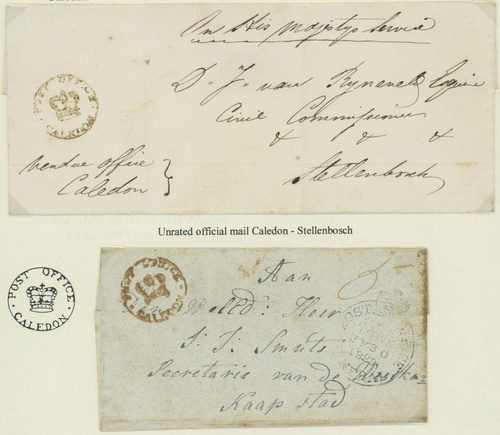 Caledon
On His Majestys Service
POST OFFICE
CALEDON
D. J. van Ryneveld Esquire
Civil Commissioner
& & &
Stellenbosch
Vendue Office
Caledon
Unrated official mail Caledon - Stellenbosch
POST OFFICE
CALEDON
POST OFFICE
CALEDON
Aan
Heer
J. J. Smuts
Secretaris van de
Kaap Stad
POST